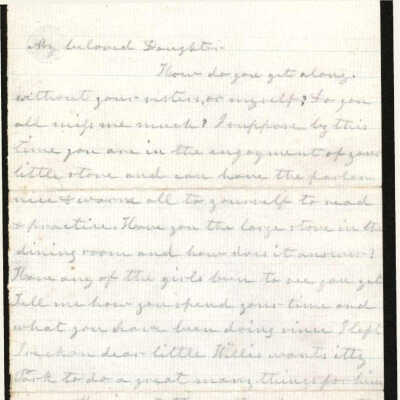 My beloved Daughter
How do you get along
without your sisters, or myself? Do you
all miss me much? I suppose by this
time you are in the enjoyment of your
little stove and can have the parlor
nice & warm all to yourself to read
& practice. Have you the large stove in the
dining room and how does it answer?
Have any of the girls been to see you yet
Tell me how you spend your time and
what you have been doing since I left
I reckon dear little Willie wants
to do a great many things for him